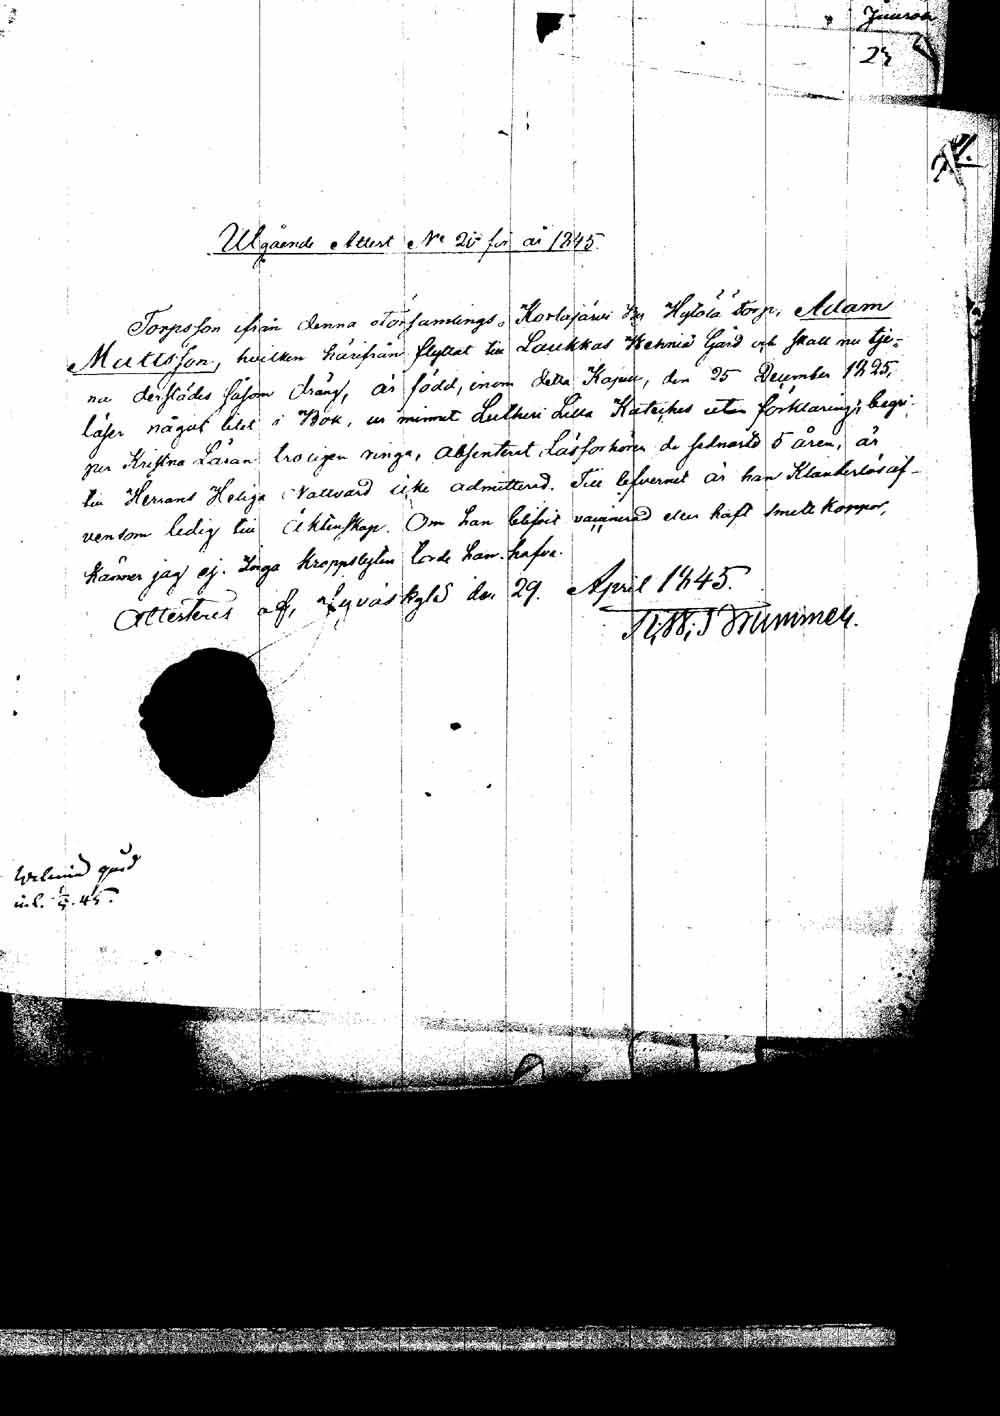 21.
Utgående Attest No 20 för år 1845.
Torpsson ifrån denna storförsamlings, Kortajärvi By Hytölä torp, Adam
Mattsson, hvilken härifrån flyttat till Laukkas Wehniä Gård och skall nu tje-
na derstädes såsom dräng, är född, inom detta Kapell, den 25 December 1825,
läser något litet i Bok, ur minnet Lutheri Lilla Kateches utan förklaring, begri-
per Kristna Läran troligen ringa, absenterat Läsförhören de sednaste 5 åren, är
till Herrans Heliga Nattvard icke admitterad. Till lefvernet är han Klanderlös äf-
vensom ledig till äktenskap. Om han blifvit vaccinerad eller haft smittkoppor,
känner jag ej. Inga kroppslyten torde han hafva.
Attesteras af, Jyväskylä den 29. April 1845.
Wimmer.
Wehniä gård
inl. 45.